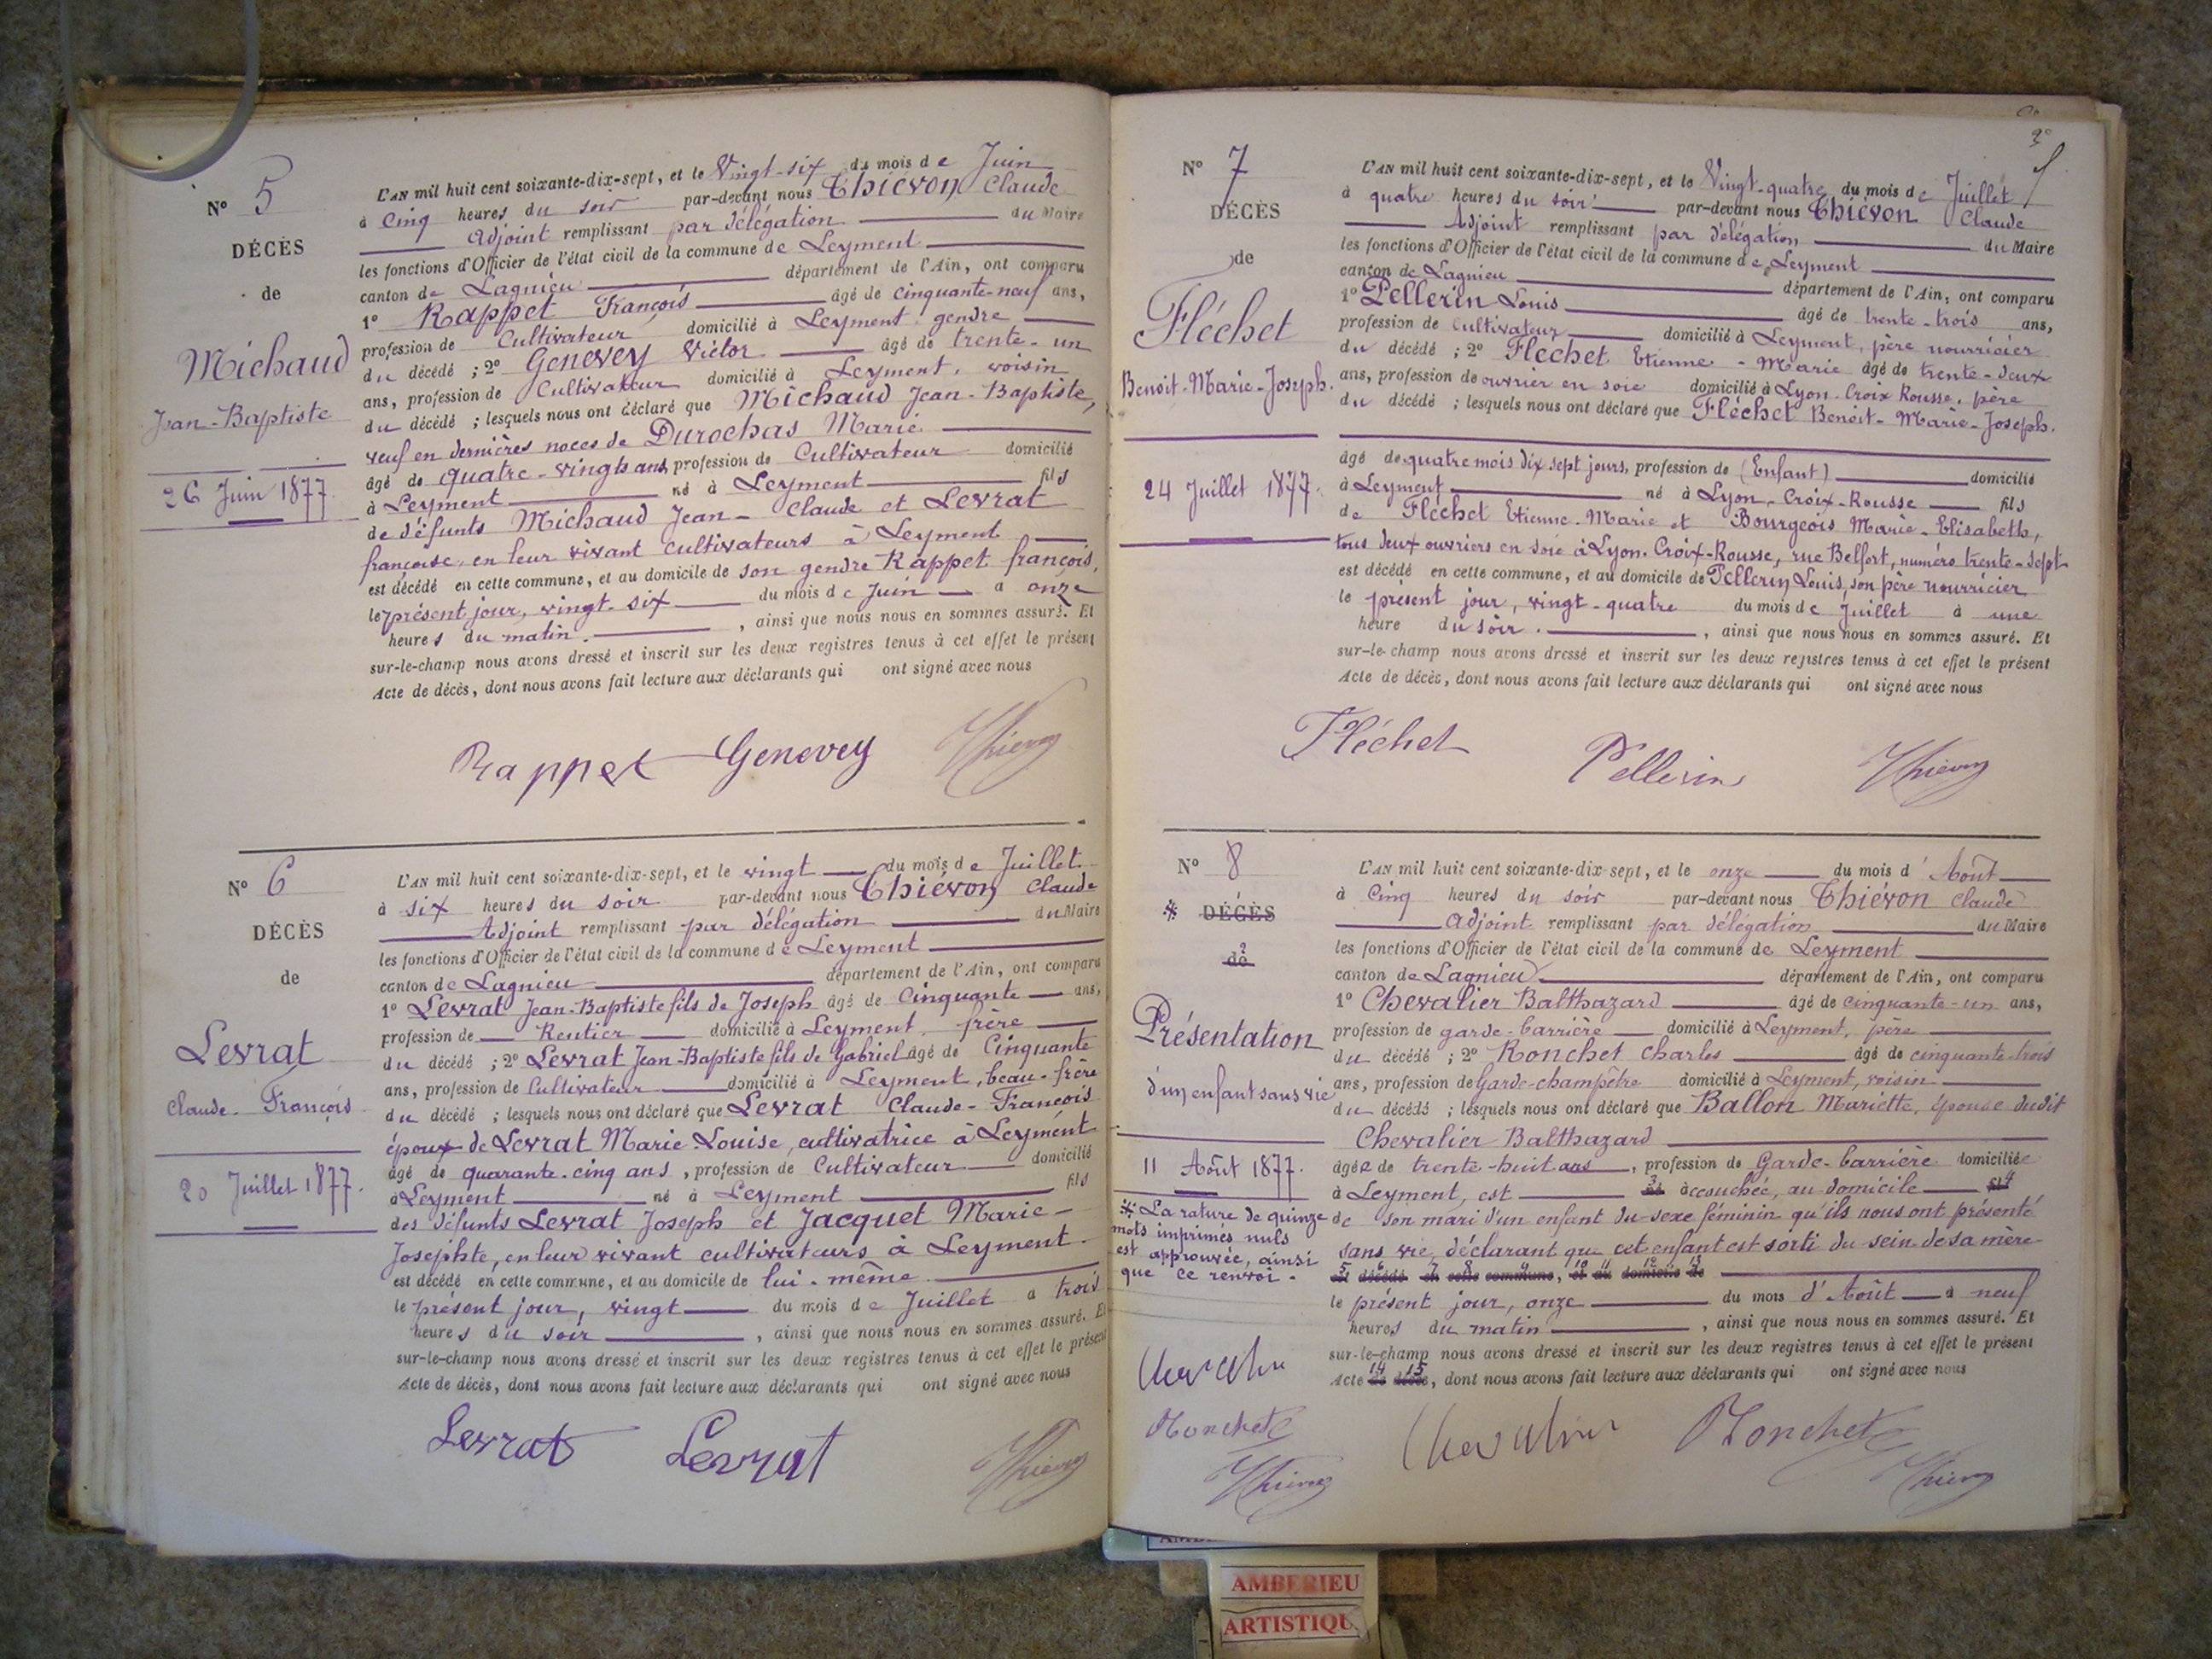 N° 5
DÉCÈS
de
Michaud
Jean-Baptiste
26 Juin 1877.
L'AN mil huit cent soixante-dix-sept, et le Vingt-six du mois de Juin
à cinq heures du soir par-devant nous Thiévon Claude
Adjoint remplissant par délégation du Maire
les fonctions d'Officier de l'état civil de la commune de Leyment
canton de Lagnieu département de l'Ain, ont comparu
1° Rappet François âgé de cinquante-neuf ans,
profession de Cultivateur domicilié à Leyment, gendre
du décédé ; 2° Genevey Victor âgé de trente-un
ans, profession de Cultivateur domicilié à Leyment, voisin
du décédé ; lesquels nous ont déclaré que Michaud Jean-Baptiste,
veuf en dernières noces de Durochas Marie
âgé de quatre-vingts ans, profession de Cultivateur domicilié
à Leyment né à Leyment fils
de défunts Michaud Jean-Claude et Levrat
françoise, en leur vivant cultivateurs à Leyment
est décédé en cette commune, et au domicile de son gendre Rappet françois,
le présent jour, vingt-six du mois de Juin à onze
heures du matin. , ainsi que nous nous en sommes assuré. Et
sur-le-champ nous avons dressé et inscrit sur les deux registres tenus à cet effet le présent
Acte de décès, dont nous avons fait lecture aux déclarants qui ont signé avec nous
Rappet Genevey Thiévon
N° 6
DÉCÈS
de
Levrat
Claude-François
20 Juillet 1877.
L'AN mil huit cent soixante-dix-sept, et le vingt du mois de Juillet
à six heures du soir par-devant nous Thiévon Claude
Adjoint remplissant par délégation du Maire
les fonctions d'Officier de l'état civil de la commune de Leyment
canton de Lagnieu département de l'Ain, ont comparu
1° Levrat Jean-Baptiste fils de Joseph âgé de Cinquante ans,
profession de Rentier domicilié à Leyment, frère
du décédé ; 2° Levrat Jean-Baptiste fils de Gabriel âgé de Cinquante
ans, profession de Cultivateur domicilié à Leyment, beau-frère
du décédé ; lesquels nous ont déclaré que Levrat Claude-François
époux de Levrat Marie-Louise, cultivatrice à Leyment
âgé de quarante-cinq ans, profession de Cultivateur domicilié
à Leyment né à Leyment fils
des défunts Levrat Joseph et Jacquet Marie-
Josephte, en leur vivant cultivateurs à Leyment.
est décédé en cette commune, et au domicile de lui-même
le présent jour, vingt du mois de Juillet à trois
heures du soir , ainsi que nous nous en sommes assuré. Et
sur-le-champ nous avons dressé et inscrit sur les deux registres tenus à cet effet le présent
Acte de décès, dont nous avons fait lecture aux déclarants qui ont signé avec nous
Levrat Levrat Thiévon
N° 7
DÉCÈS
de
Fléchet
Benoît-Marie-Joseph.
24 Juillet 1877.
L'AN mil huit cent soixante-dix-sept, et le Vingt-quatre du mois de Juillet
à quatre heures du soir par-devant nous Thiévon Claude
Adjoint remplissant par délégation du Maire
les fonctions d'Officier de l'état civil de la commune de Leyment
canton de Lagnieu département de l'Ain, ont comparu
1° Pellerin Louis âgé de trente-trois ans,
profession de Cultivateur domicilié à Leyment, père nourricier
du décédé ; 2° Fléchet Etienne-Marie âgé de trente-deux
ans, profession de ouvrier en soie domicilié à Lyon-Croix Rousse, père
du décédé ; lesquels nous ont déclaré que Fléchet Benoît-Marie-Joseph.
âgé de quatre mois dix sept jours, profession de (Enfant) domicilié
à Leyment né à Lyon-Croix-Rousse fils
de Fléchet Etienne-Marie et Bourgeois Marie-Elisabeth,
tous deux ouvriers en soie à Lyon-Croix-Rousse, rue Belfort, numéro trente-sept
est décédé en cette commune, et au domicile de Pellerin Louis, son père nourricier
le présent jour, vingt-quatre du mois de Juillet à une
heure du soir. , ainsi que nous nous en sommes assuré. Et
sur-le-champ nous avons dressé et inscrit sur les deux registres tenus à cet effet le présent
Acte de décès, dont nous avons fait lecture aux déclarants qui ont signé avec nous
Fléchet Pellerin Thiévon
N° 8
* DÉCÈS
2
de
Présentation
d'un enfant sans vie
11 Août 1877.
* La rature de quinze
mots imprimés nuls
est approuvée, ainsi
que ce renvoi.
Chevalier
Ronchet
Thiévon
L'AN mil huit cent soixante-dix-sept, et le onze du mois d'Août
à Cinq heures du soir par-devant nous Thiévon Claude
Adjoint remplissant par délégation du Maire
les fonctions d'Officier de l'état civil de la commune de Leyment
canton de Lagnieu département de l'Ain, ont comparu
1° Chevalier Balthazard âgé de cinquante-un ans,
profession de garde-barrière domicilié à Leyment, père
du décédé ; 2° Ronchet Charles âgé de cinquante-trois
ans, profession de Garde-champêtre domicilié à Leyment, voisin
du décédé ; lesquels nous ont déclaré que Ballon Mariette, épouse dudit
Chevalier Balthazard
âgée de trente-huit ans, profession de Garde-barrière domiciliée
à Leyment, est né accouchée, au domicile fils
de son mari d'un enfant du sexe féminin qu'ils nous ont présenté
sans vie, déclarant que cet enfant est sorti du sein de sa mère
est décédé en cette commune, et au domicile de
le présent jour, onze du mois d'Août à neuf
heures du matin , ainsi que nous nous en sommes assuré. Et
sur-le-champ nous avons dressé et inscrit sur les deux registres tenus à cet effet le présent
Acte de décès, dont nous avons fait lecture aux déclarants qui ont signé avec nous
Chevalier Ronchet Thiévon
AMBERIEU
ARTISTIQU